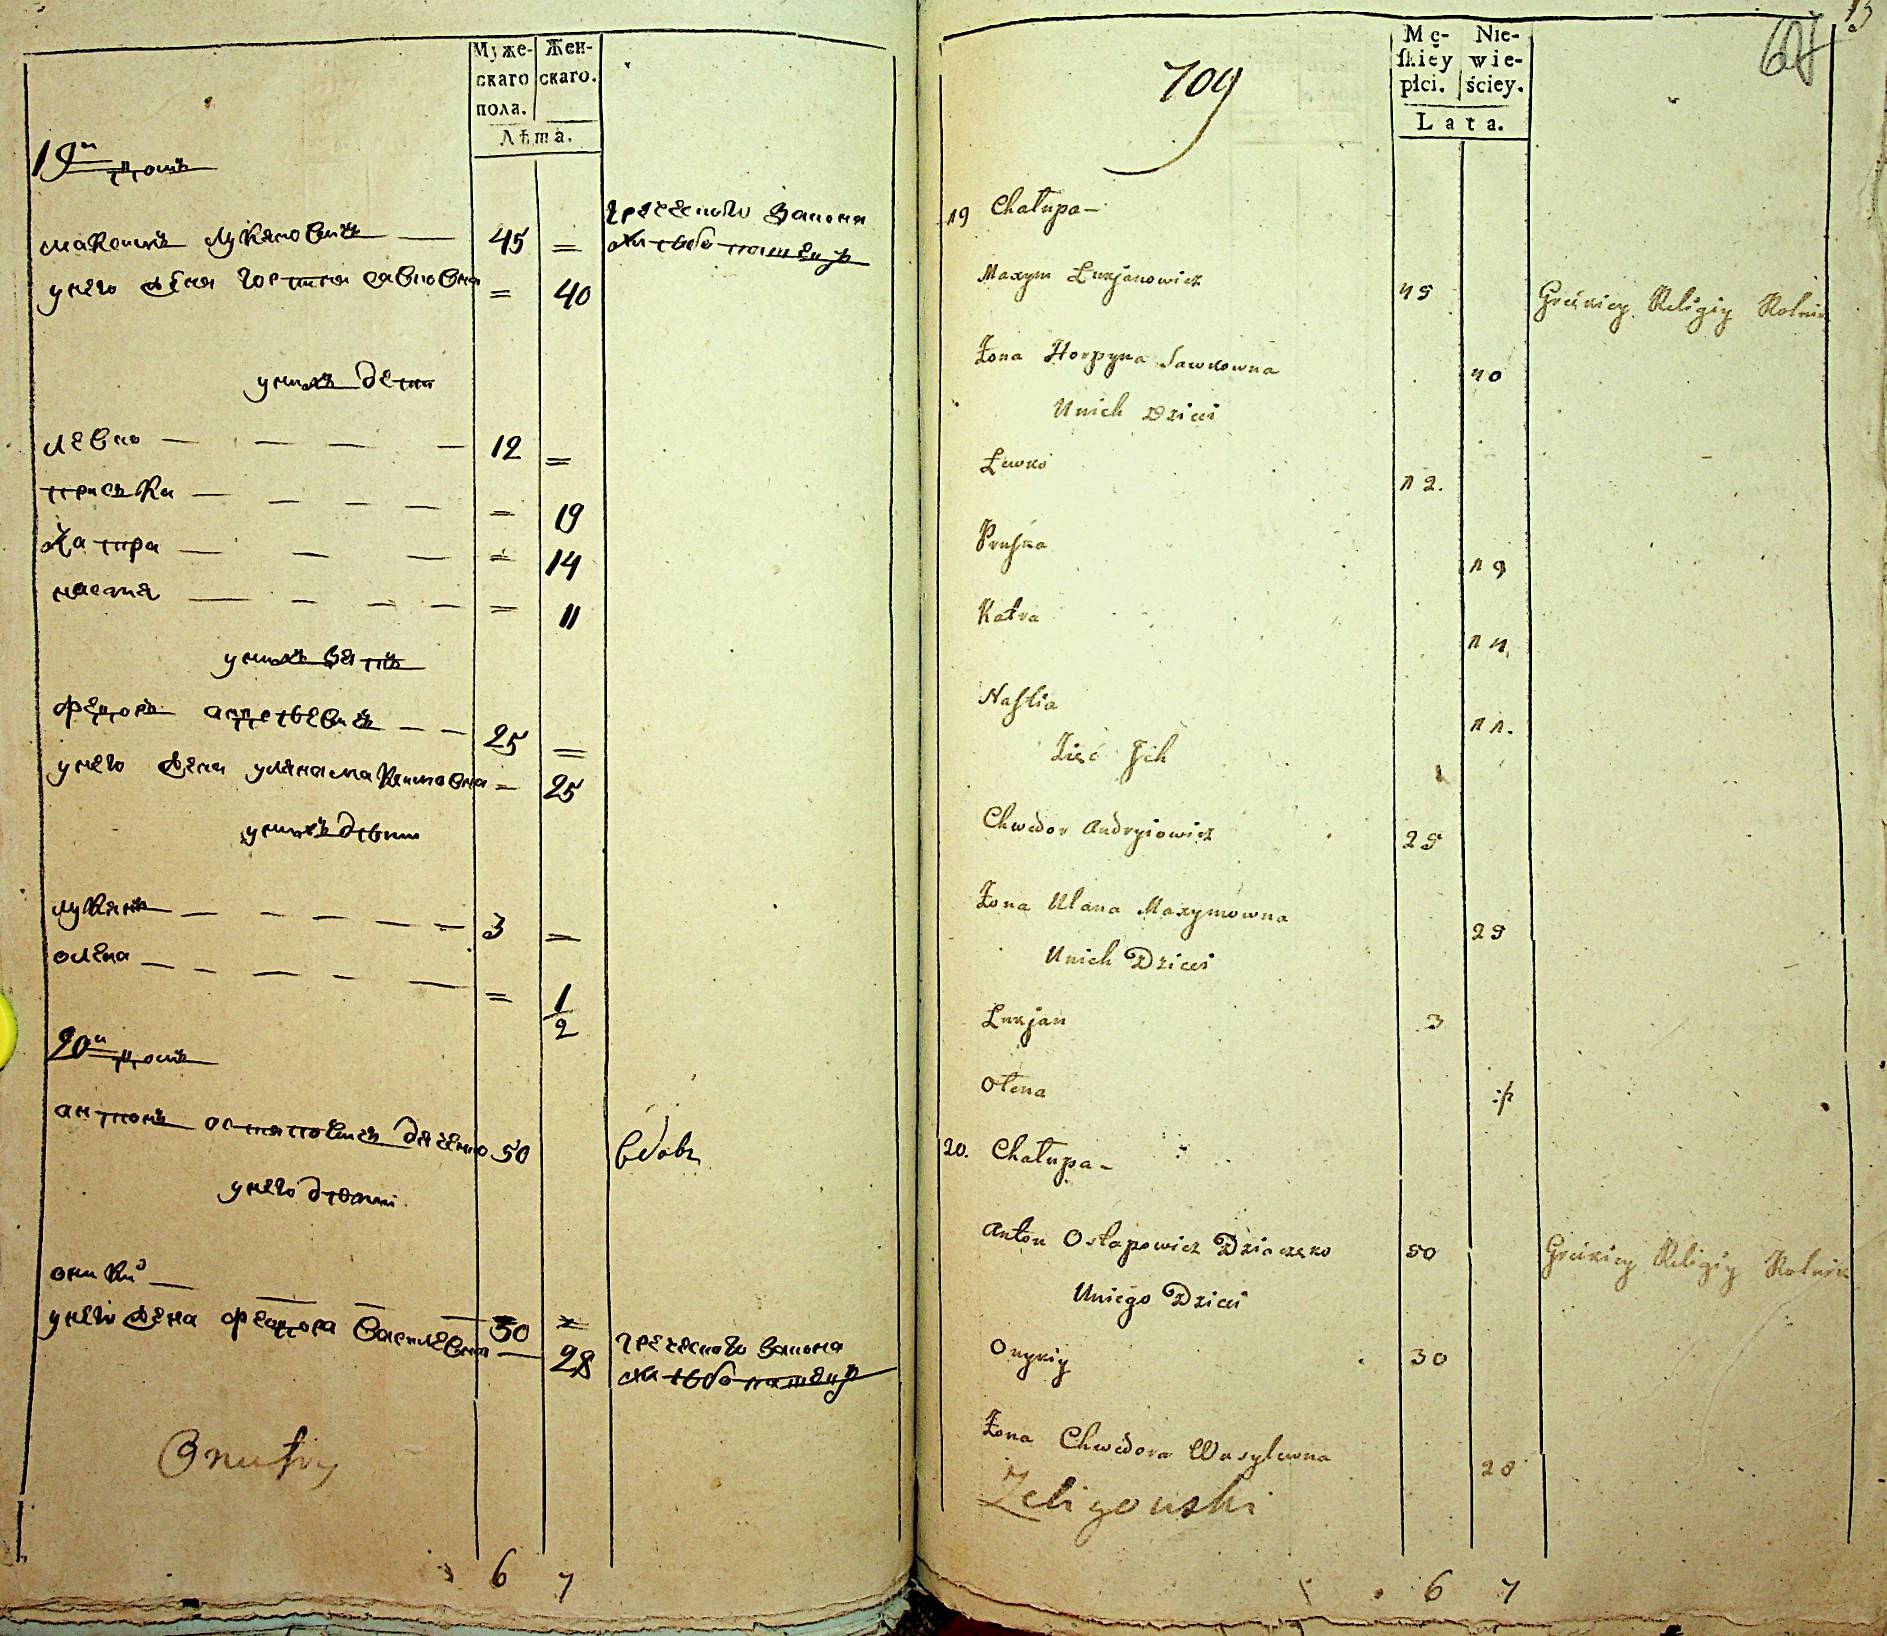 Муже-
скаго
пола.
Жен-
скаго.
Лѣта.
19й домъ
греческого закона
хлѣбопашецъ
максимъ лукяновичъ — 45 =
у него жена горпина савковна = 40
у нихъ дети
левко — — — — 12 =
приська — — — — = 19
катра — — — = 14
настя — — — — = 11
у нихъ зять
федоръ андреевичъ — — 25 =
у него жена уляна максимовна = 25
у нихъ дѣти
лукянъ — — — — — 3 =
олена — — — — = 1/2
20й домъ
антонъ остаповичъ дяченко 50
вдовъ
у него дѣти
оникій — 30 =
у него жена федора василевна — 28
греческого закона
хлѣбопашецъ
6 7
709
Mę-
skiéy
płci.
Nie-
wie-
ściey.
Lata.
19 Chałupa —
Maxym Łukjanowicz 45
Greckiey Religiy Rolnik
Żona Horpyna Sawkowna 40
Unich Dzieci
Lewko 12.
Pruska 19
Katra 14.
Nastia 11.
Zięć Jch
Chwedor Andryiowicz 25
Żona Ulana Maxymowna 25
Unich Dzieci
Łukjan 3
Ołena :/2
20. Chałupa —
Anton Ostapowicz Dziaczęko 50
Greckiey Religiy Rolnik
Uniego Dzieci
Onykiy 30
Żona Chwedora Wasylewna 28
Zeligowski
6 7